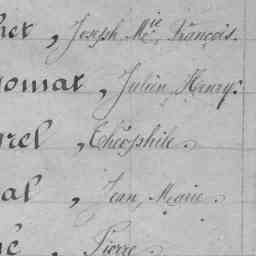 het, Joseph Mie François.
omat, Julien Henry.
rel, Théophile.
al, Jean Marie.
é, Pierre.